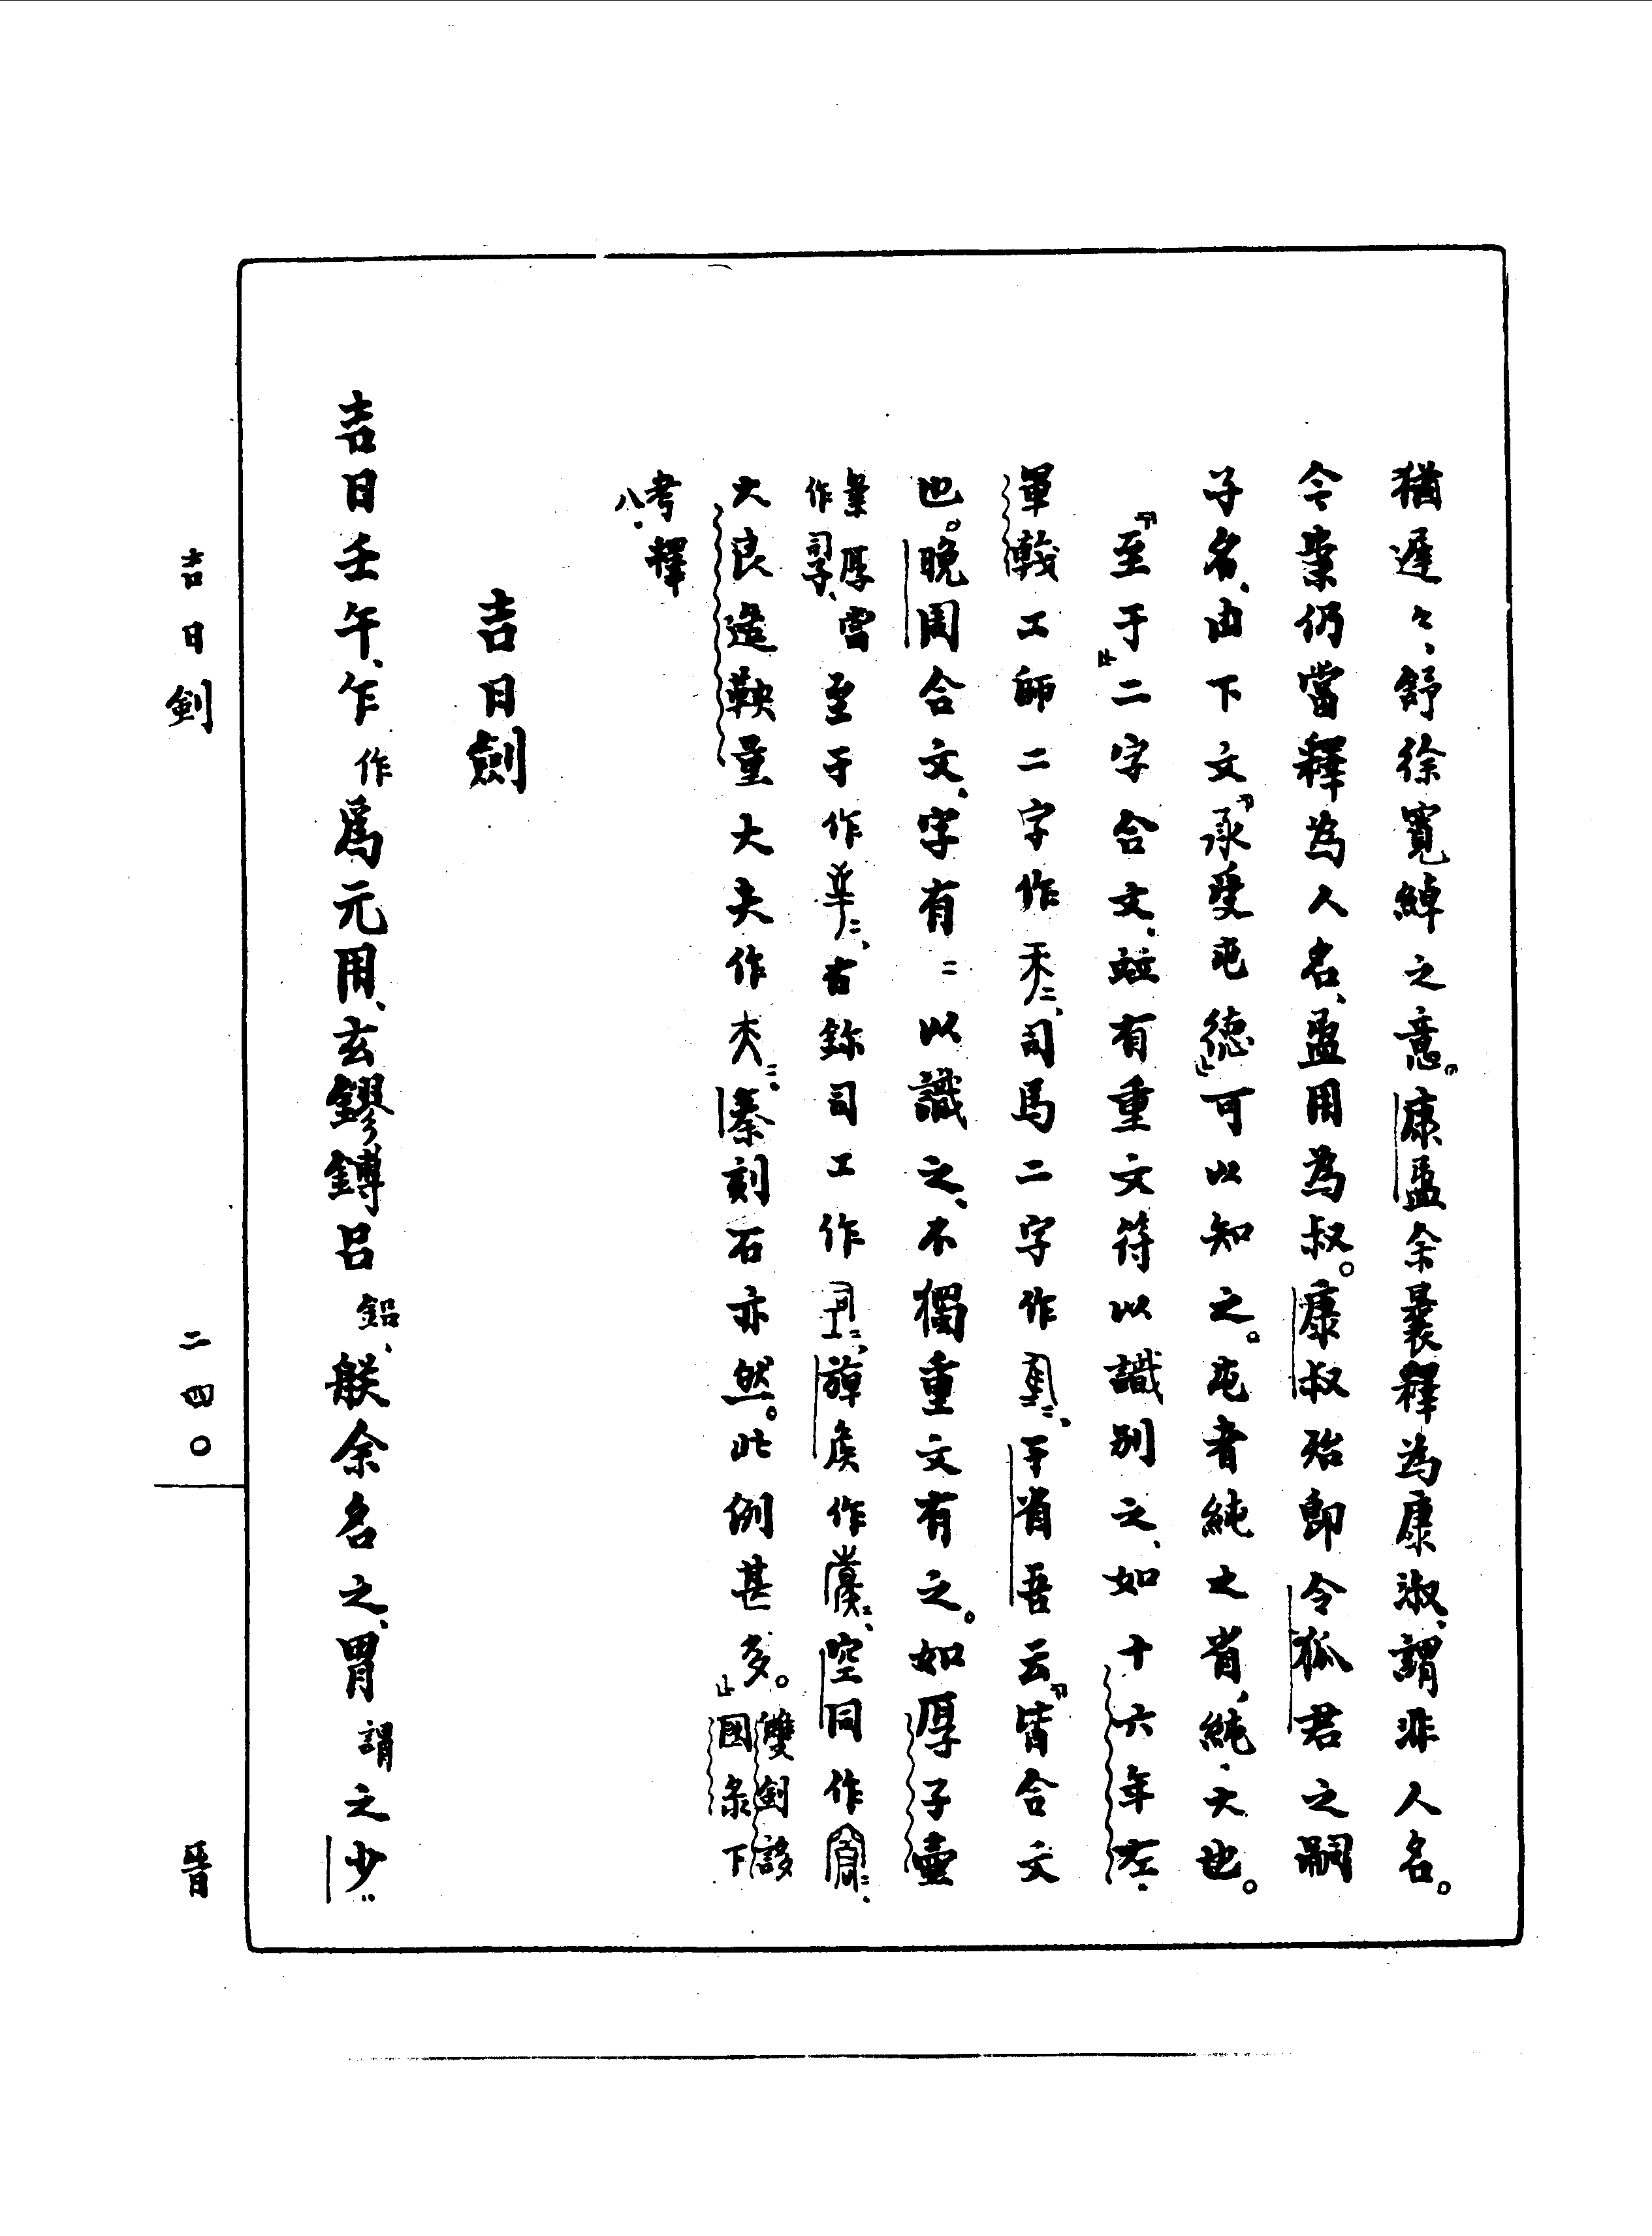 猶遲々、舒徐寬綽之意。康盄余曩釋為康淑、謂非人名。
今案仍當釋為人名、盄用為叔。康叔殆即令狐君之嗣
子名、由下文「承受屯德」可以知之。屯者純之省、純、大也。
「至于」二字合文、並有重文符以識別之、如十六年左、
軍戟工師二字作、司馬二字作、于省吾云「皆合文
也。晚周合文、字有二以識之、不獨重文有之。如厚子壺
彙厚雷作、至于作、古鉨司工作、韓侯作、空同作、
大良造鞅量大夫作夫二、秦刻石亦然。此例甚多。」雙劍誃國錄下
考釋八、
吉日劍
吉日壬午、乍作為元用、玄鏐鎛呂鋁、朕余名之、胃謂之少二
吉日劍
二四〇
晉